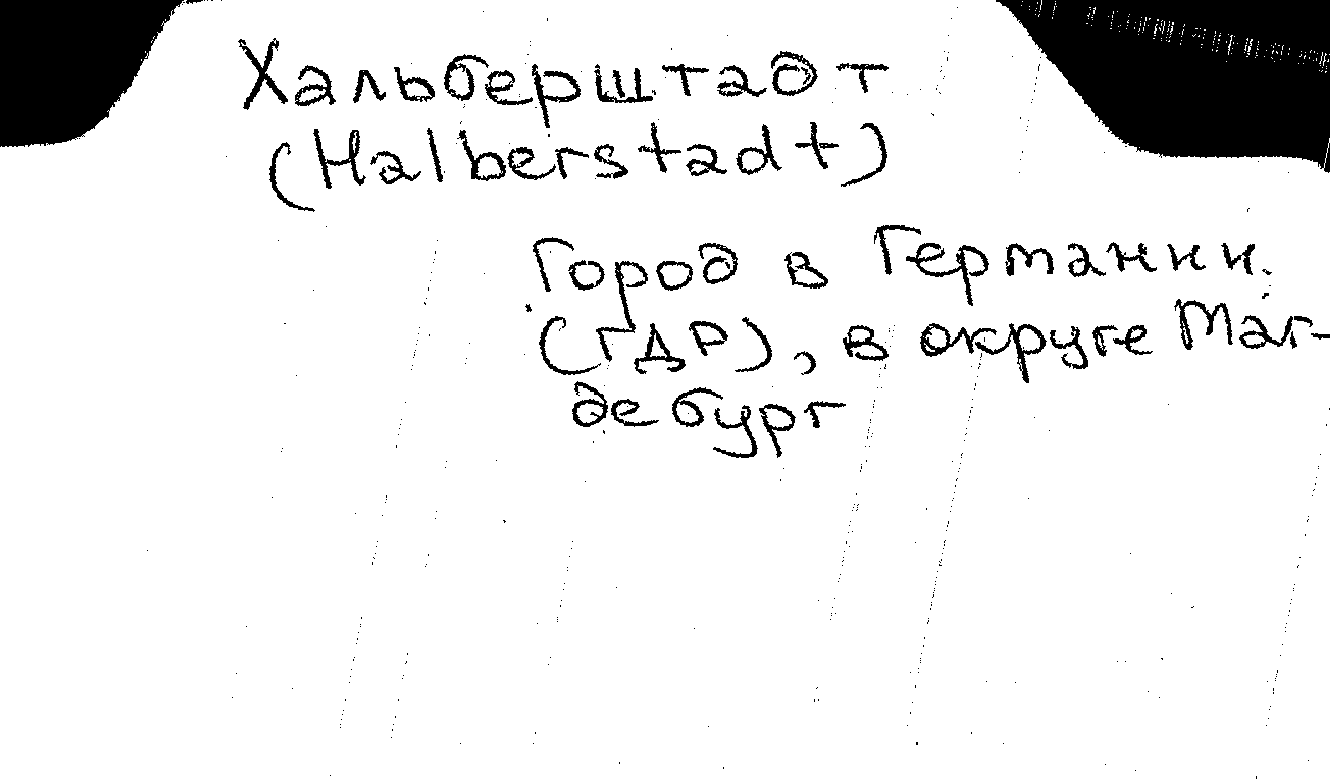 Хальберштадт
(Halberstadt)
Город в Германии.
(ГДР), в округе Маг-
дебург